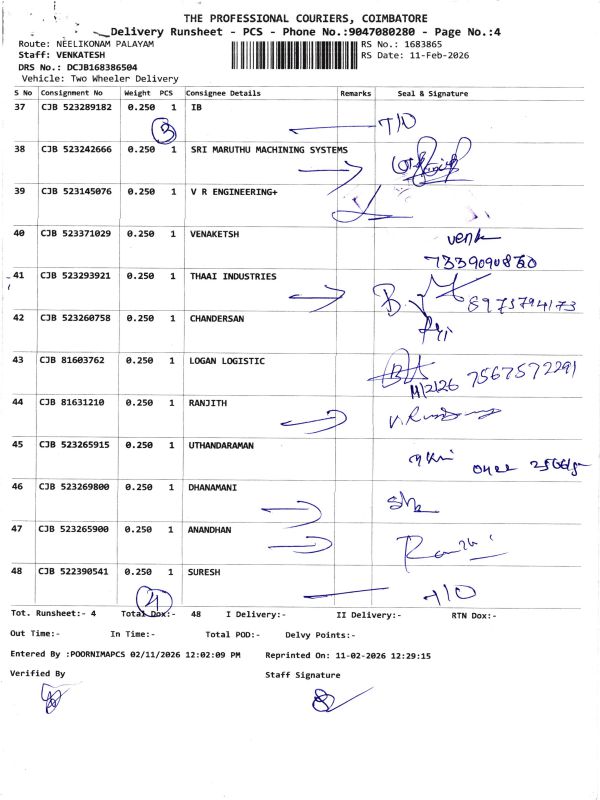 THE PROFESSIONAL COURIERS, COIMBATORE
Delivery Runsheet - PCS - Phone No.:9047080280 - Page No.:4
Route: NEELIKONAM PALAYAM RS No.: 1683865
Staff: VENKATESH RS Date: 11-Feb-2026
DRS No.: DCJB168386504
Vehicle: Two Wheeler Delivery
S No Consignment No Weight PCS Consignee Details Remarks Seal & Signature
37 CJB 523289182 0.250 1 IB
3 T/O
38 CJB 523242666 0.250 1 SRI MARUTHU MACHINING SYSTEMS
39 CJB 523145076 0.250 1 V R ENGINEERING+
40 CJB 523371029 0.250 1 VENAKETSH
venk
41 CJB 523293921 0.250 1 THAAI INDUSTRIES
8973794173
42 CJB 523260758 0.250 1 CHANDERSAN
43 CJB 81603762 0.250 1 LOGAN LOGISTIC
11/2/26 7567572291
44 CJB 81631210 0.250 1 RANJITH
45 CJB 523265915 0.250 1 UTHANDARAMAN
46 CJB 523269800 0.250 1 DHANAMANI
47 CJB 523265900 0.250 1 ANANDHAN
48 CJB 522390541 0.250 1 SURESH
4 T/O
Tot. Runsheet:- 4 Total Dox:- 48 I Delivery:- II Delivery:- RTN Dox:-
Out Time:- In Time:- Total POD:- Delvy Points:-
Entered By :POORNIMAPCS 02/11/2026 12:02:09 PM Reprinted On: 11-02-2026 12:29:15
Verified By Staff Signature